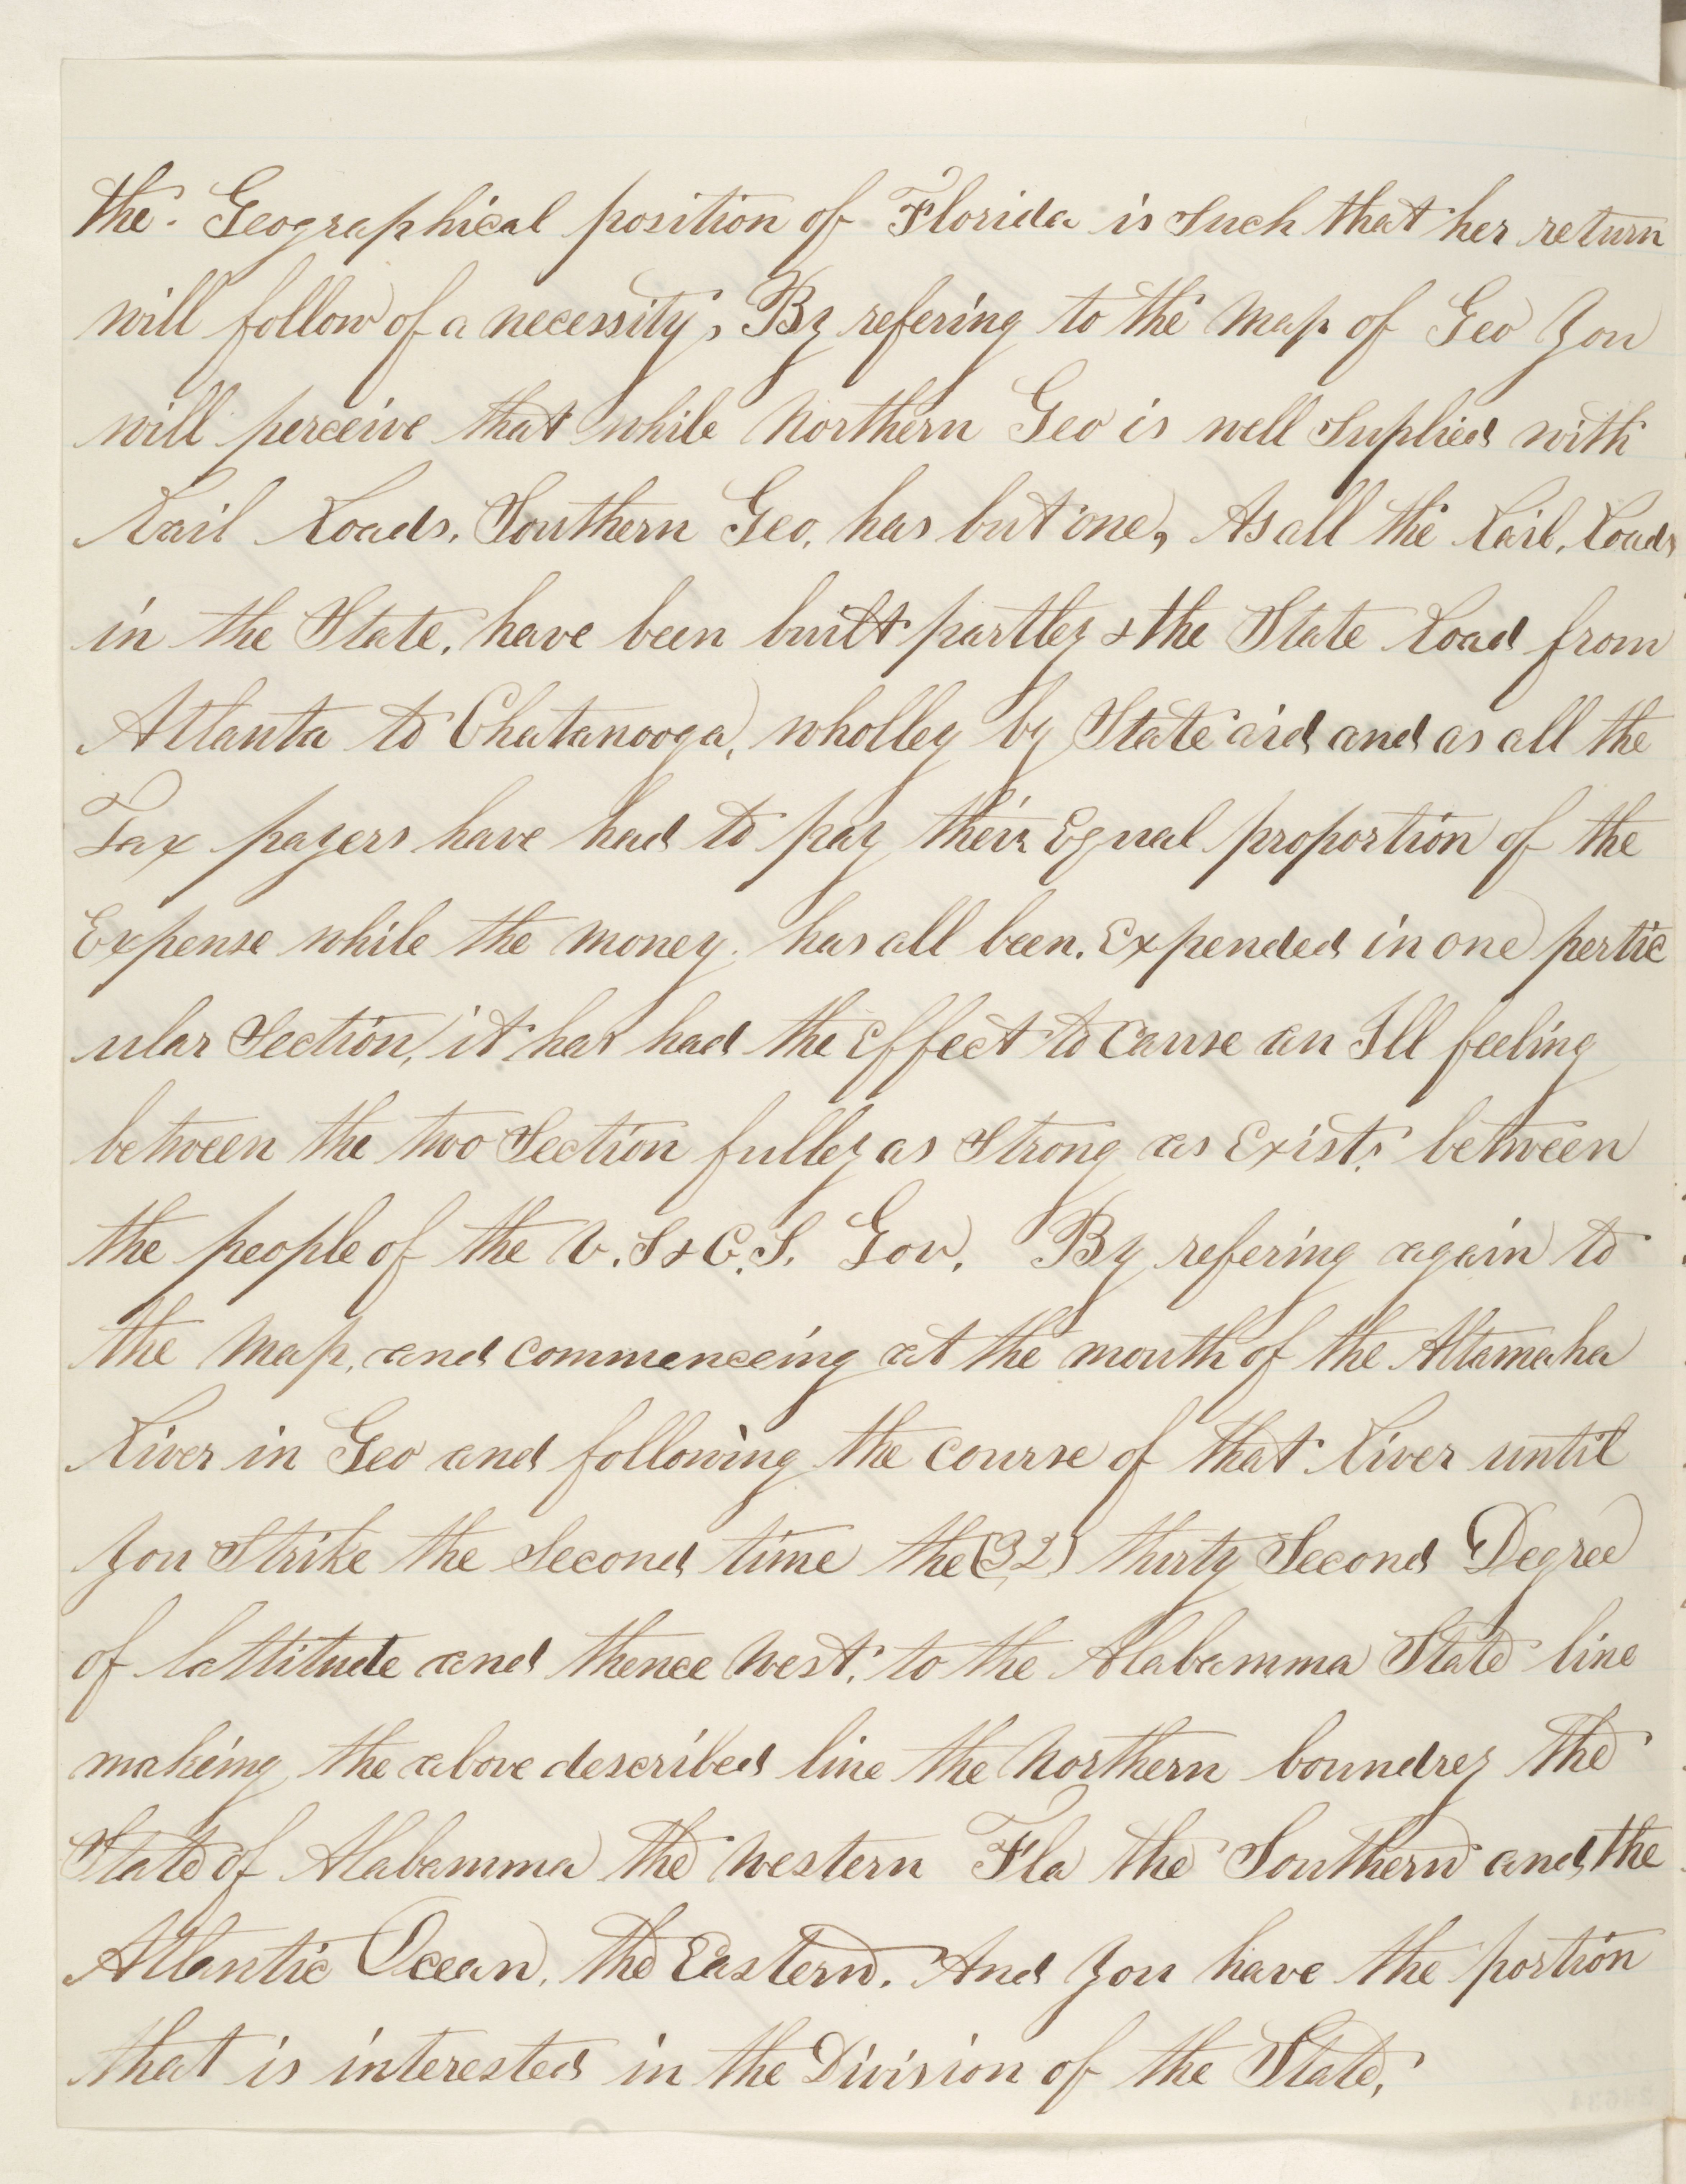 the. Geographical position of Florida is Such that her return
will follow of a necessity, By refering to the Map of Geo You
will perceive that while Northern Geo is well Suplied with
Rail Roads, Southern Geo, has but one, As all the Rail, Roads
in the State, have been built partley & the State Road from
Atlanta to Chatanooga, wholley by State aid and as all the
Tax payers have had to pay their Equal proportion of the
Expense while the money. has all been. Expended in one pertic
ular Section, it has had the Effect to Cause an Ill feeling
between the two Section fulley as Strong as Exists between
the people of the U.S & C.S. Gov. By refering again to
the Map, and commenceing at the mouth of the Altamaha
River in Geo and following the course of that River until
You Strike the Second time the (32) thirty Second Degree
of lattitude and thence West, to the Alabamma State line
making the above described line the Northern boundrey the
State of Alabamma the Western Fla the Southern and the
Atlantic Ocean, the Eastern. And You have the portion
that is interested in the Division of the State,